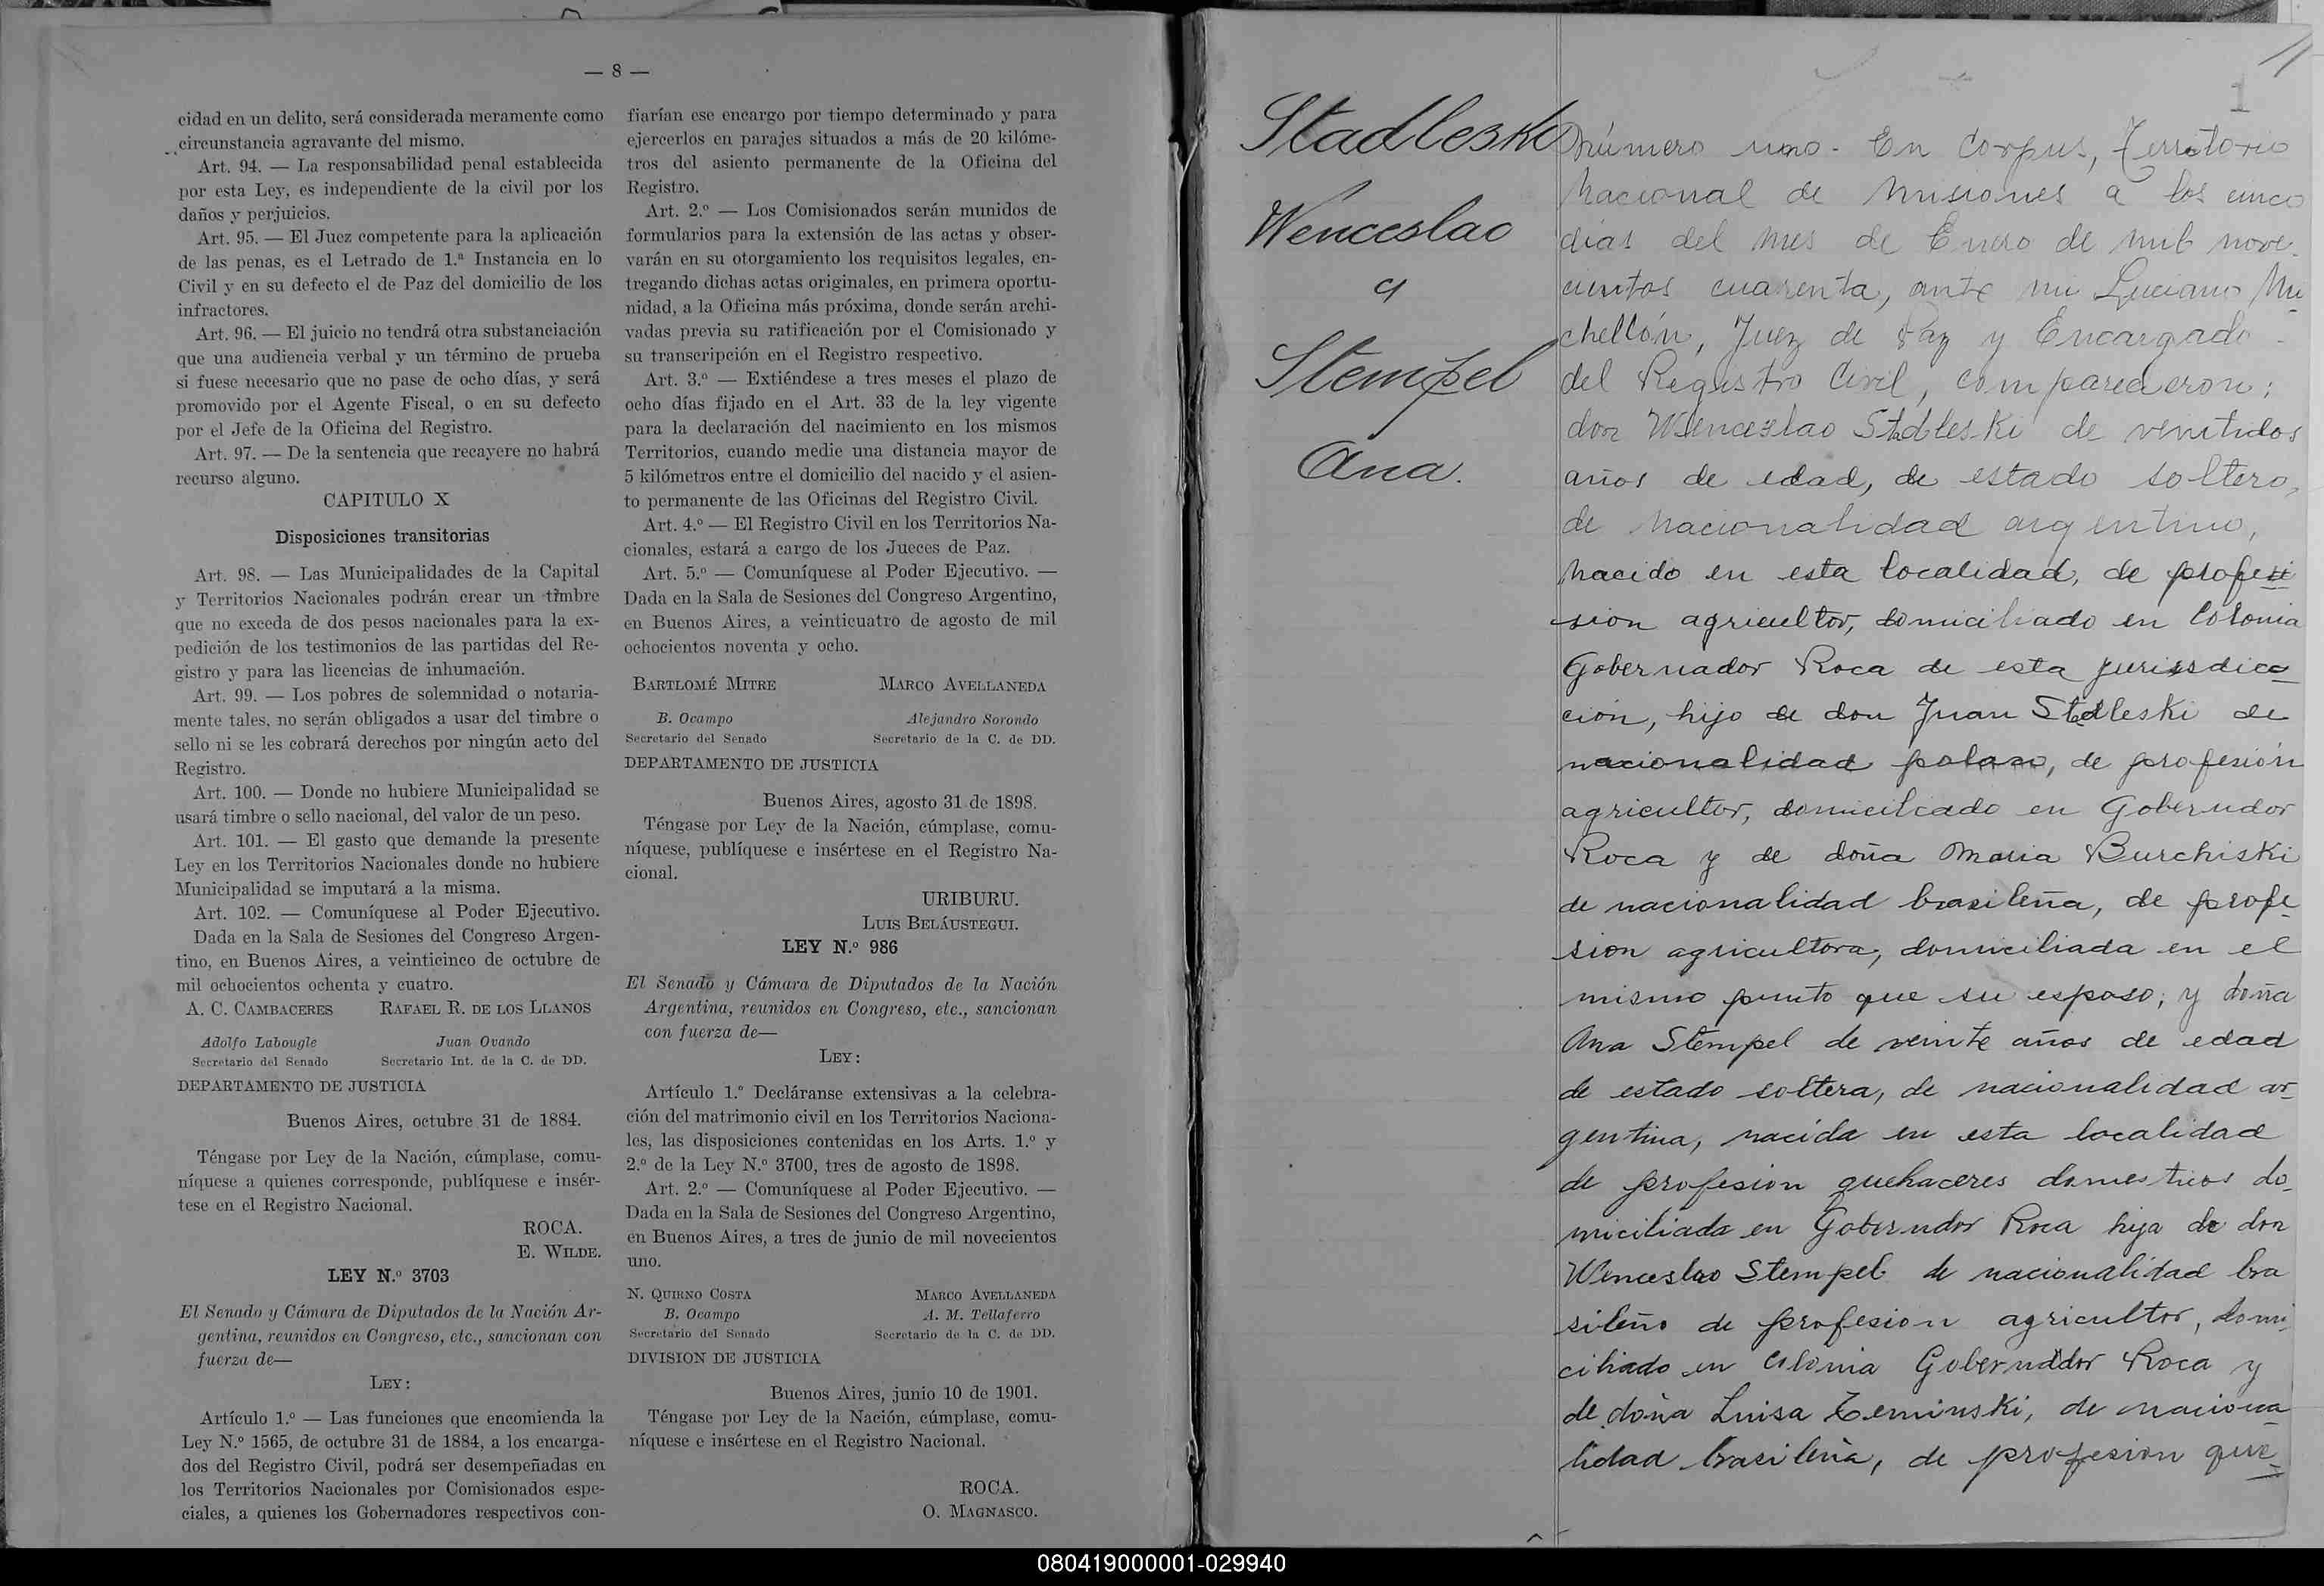 — 8 —
cidad en un delito, será considerada meramente como
circunstancia agravante del mismo.
Art. 94. — La responsabilidad penal establecida
por esta Ley, es independiente de la civil por los
daños y perjuicios.
Art. 95. — El Juez competente para la aplicación
de las penas, es el Letrado de 1.ª Instancia en lo
Civil y en su defecto el de Paz del domicilio de los
infractores.
Art. 96. — El juicio no tendrá otra substanciación
que una audiencia verbal y un término de prueba
si fuese necesario que no pase de ocho días, y será
promovido por el Agente Fiscal, o en su defecto
por el Jefe de la Oficina del Registro.
Art. 97. — De la sentencia que recayere no habrá
recurso alguno.
CAPITULO X
Disposiciones transitorias
Art. 98. — Las Municipalidades de la Capital
y Territorios Nacionales podrán crear un timbre
que no exceda de dos pesos nacionales para la ex-
pedición de los testimonios de las partidas del Re-
gistro y para las licencias de inhumación.
Art. 99. — Los pobres de solemnidad o notaria-
mente tales, no serán obligados a usar del timbre o
sello ni se les cobrará derechos por ningún acto del
Registro.
Art. 100. — Donde no hubiere Municipalidad se
usará timbre o sello nacional, del valor de un peso.
Art. 101. — El gasto que demande la presente
Ley en los Territorios Nacionales donde no hubiere
Municipalidad se imputará a la misma.
Art. 102. — Comuníquese al Poder Ejecutivo.
Dada en la Sala de Sesiones del Congreso Argen-
tino, en Buenos Aires, a veinticinco de octubre de
mil ochocientos ochenta y cuatro.
A. C. CAMBACERES RAFAEL R. DE LOS LLANOS
Adolfo Labougle Juan Ovando
Secretario del Senado Secretario Int. de la C. de DD.
DEPARTAMENTO DE JUSTICIA
Buenos Aires, octubre 31 de 1884.
Téngase por Ley de la Nación, cúmplase, comu-
níquese a quienes corresponde, publíquese e insér-
tese en el Registro Nacional.
ROCA.
E. WILDE.
LEY N.º 3703
El Senado y Cámara de Diputados de la Nación Ar-
gentina, reunidos en Congreso, etc., sancionan con
fuerza de—
LEY:
Artículo 1.º — Las funciones que encomienda la
Ley N.º 1565, de octubre 31 de 1884, a los encarga-
dos del Registro Civil, podrá ser desempeñadas en
los Territorios Nacionales por Comisionados espe-
ciales, a quienes los Gobernadores respectivos con-
fiarían ese encargo por tiempo determinado y para
ejercerlos en parajes situados a más de 20 kilóme-
tros del asiento permanente de la Oficina del
Registro.
Art. 2.º — Los Comisionados serán munidos de
formularios para la extensión de las actas y obser-
varán en su otorgamiento los requisitos legales, en-
tregando dichas actas originales, en primera oportu-
nidad, a la Oficina más próxima, donde serán archi-
vadas previa su ratificación por el Comisionado y
su transcripción en el Registro respectivo.
Art. 3.º — Extiéndese a tres meses el plazo de
ocho días fijado en el Art. 33 de la ley vigente
para la declaración del nacimiento en los mismos
Territorios, cuando medie una distancia mayor de
5 kilómetros entre el domicilio del nacido y el asien-
to permanente de las Oficinas del Registro Civil.
Art. 4.º — El Registro Civil en los Territorios Na-
cionales, estará a cargo de los Jueces de Paz.
Art. 5.º — Comuníquese al Poder Ejecutivo. —
Dada en la Sala de Sesiones del Congreso Argentino,
en Buenos Aires, a veinticuatro de agosto de mil
ochocientos noventa y ocho.
BARTLOMÉ MITRE MARCO AVELLANEDA
B. Ocampo Alejandro Sorondo
Secretario del Senado Secretario de la C. de DD.
DEPARTAMENTO DE JUSTICIA
Buenos Aires, agosto 31 de 1898.
Téngase por Ley de la Nación, cúmplase, comu-
níquese, publíquese e insértese en el Registro Na-
cional.
URIBURU.
LUIS BELÁUSTEGUI.
LEY N.º 986
El Senado y Cámara de Diputados de la Nación
Argentina, reunidos en Congreso, etc., sancionan
con fuerza de—
LEY:
Artículo 1.º Decláranse extensivas a la celebra-
ción del matrimonio civil en los Territorios Naciona-
les, las disposiciones contenidas en los Arts. 1.º y
2.º de la Ley N.º 3700, tres de agosto de 1898.
Art. 2.º — Comuníquese al Poder Ejecutivo. —
Dada en la Sala de Sesiones del Congreso Argentino,
en Buenos Aires, a tres de junio de mil novecientos
uno.
N. QUIRNO COSTA MARCO AVELLANEDA
B. Ocampo A. M. Tellaferro
Secretario del Senado Secretario de la C. de DD.
DIVISION DE JUSTICIA
Buenos Aires, junio 10 de 1901.
Téngase por Ley de la Nación, cúmplase, comu-
níquese e insértese en el Registro Nacional.
ROCA.
O. MAGNASCO.
1
Stadleski
Wenceslao
a
Stempel
Ana.
Número uno. En Corpus, Territorio
Nacional de Misiones a los cinco
dias del mes de Enero de mil nove-
cientos cuarenta, ante mi Luciano Mi-
chellón, Juez de Paz y Encargado
del Registro Civil, comparecieron;
don Wenceslao Stadleski de veintidos
años de edad, de estado soltero,
de nacionalidad argentino,
nacido en esta localidad, de profesi
sion agricultor, domiciliado en Colonia
Gobernador Roca de esta jurisdicc-
ción, hijo de don Juan Stadleski de
nacionalidad polaco, de profesión
agricultor, domiciliado en Goberndor
Roca y de doña Maria Burchiski
de nacionalidad brasileña, de profe-
sion agricultora, domiciliada en el
mismo punto que su esposo; y doña
Ana Stempel de veinte años de edad
de estado soltera, de nacionalidad ar-
gentina, nacida en esta localidad
de profesion quehaceres domesticos do-
miciliada en Goberndor Roca hija de don
Wenceslao Stempel de nacionalidad bra
sileño de profesion agricultor, domi
ciliado en Colonia Gobernador Roca y
de doña Luisa Zeminski, de naciona-
lidad brasileña, de profesion que-
080419000001-029940